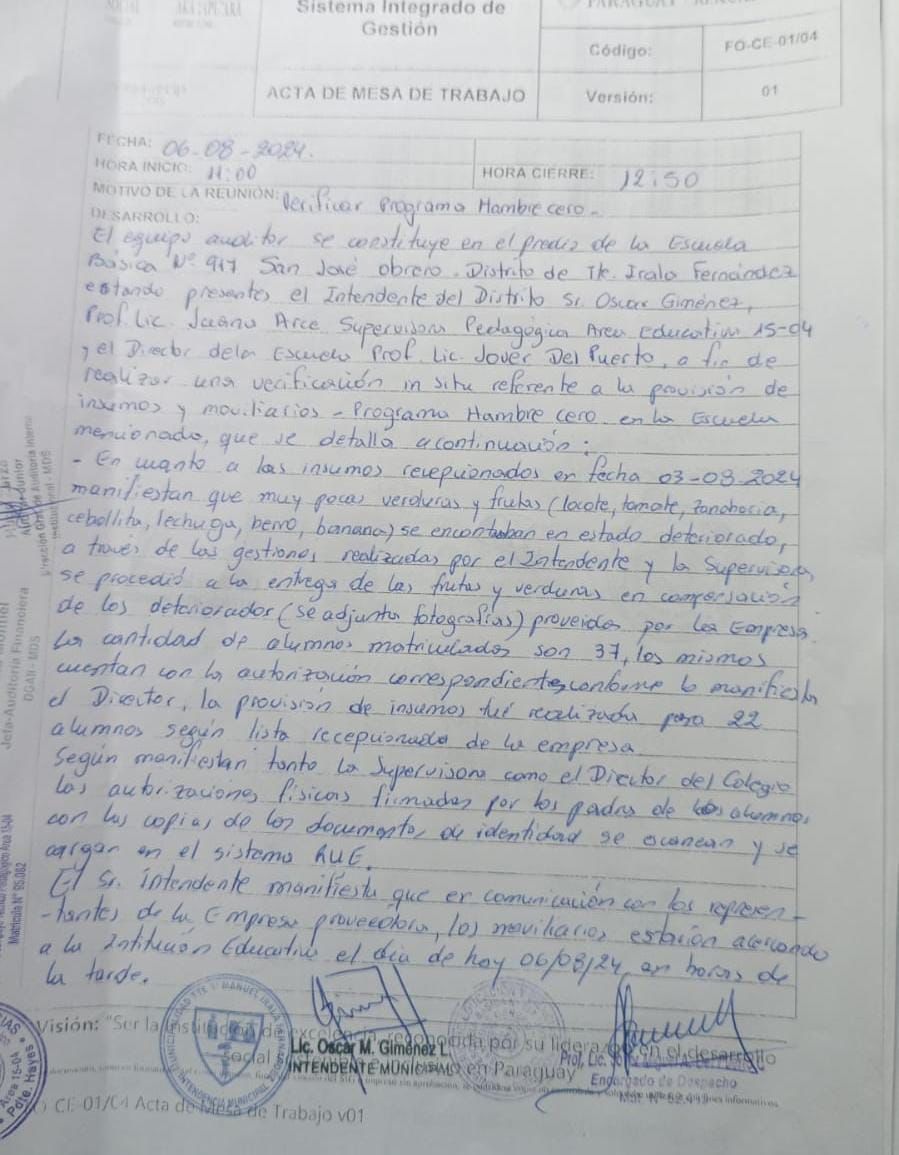 Sistema Integrado de
Gestión
Código: FO-CE-01/04
ACTA DE MESA DE TRABAJO
Versión: 01
FECHA: 06-08-2024.
HORA INICIO: 11:00
HORA CIERRE: 12:50
MOTIVO DE LA REUNIÓN: Verificar Programa Hambre cero.
DESARROLLO:
El equipo auditor se constituye en el predio de la Escuela
Básica N° 917 San José obrero. Distrito de Tte. Irala Fernández
estando presentes el Intendente del Distrito Sr. Oscar Giménez,
Prof. Lic. Juana Arce Supervisora Pedagógica Area Educativa 15-04
y el Director de la Escuela Prof. Lic. Jover Del Puerto, a fin de
realizar una verificación in situ referente a la provisión de
insumos y moviliarios - Programa Hambre cero en la Escuela
mencionado, que se detalla a continuación:
- En cuanto a los insumos recepcionados en fecha 03-08-2024
manifiestan que muy pocas verduras y frutas (locote, tomate, zanahoria,
cebollita, lechuga, berro, banana) se encontraban en estado deteriorado,
a través de las gestiones realizadas por el Intendente y la Supervisora,
se procedió a la entrega de las frutas y verduras en compensación
de los deteriorados (se adjunta fotografías) proveidos por la Empresa.
La cantidad de alumnos matriculados son 37, los mismos
cuentan con la autorización correspondiente, conforme lo manifiesta
el Director, la provisión de insumos fué realizada para 22
alumnos según lista recepcionada de la empresa
Según manifiestan tanto la Supervisora como el Director del Colegio
las autorizaciones físicas firmadas por los padres de los alumnos
con las copias de los documentos de identidad se escanean y se
cargan en el sistema RUE.
El Sr. intendente manifiesta que en comunicación con los represen-
-tantes de la Empresa proveedora, los moviliarios estarían acercando
a la Intitución Educativa el día de hoy 06/08/24, en horas de
la tarde.
Visión: "Ser la institución de excelencia reconocida por su liderazgo en el desarrollo
Social en Paraguay
Lic. Oscar M. Giménez L.
INTENDENTE MUNICIPAL
Prof. Lic.
Encargado de Despacho
CE-01/04 Acta de Mesa de Trabajo v01
Jefa-Auditoría Financiera
DGAI - MDS
Matrícula N° 95.062
Area 15-04
Pdte. Hayes
INTENDENCIA MUNICIPAL